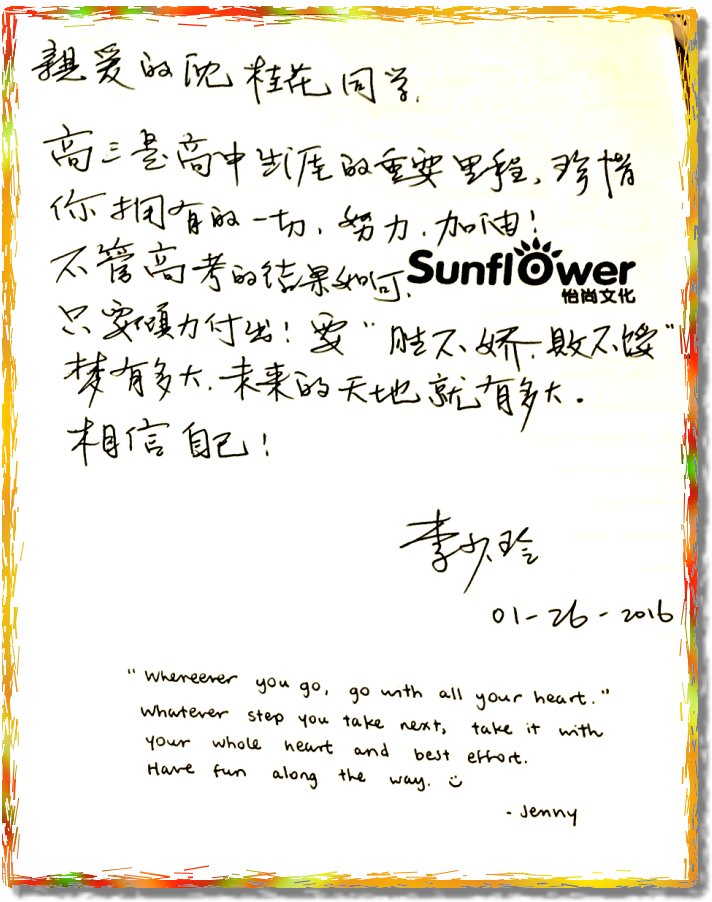 親爱的沈桂花同学,
高三是高中生涯的重要里程,珍惜
你拥有的一切,努力,加油!
不管高考的结果如何,
Sunflower
怡尚文化
只要倾力付出!要"胜不娇,败不馁"
梦有多大,未来的天地就有多大。
相信自己!
李少玲
01-26-2016
"Whereever you go, go with all your heart."
Whatever step you take next, take it with
your whole heart and best effort.
Have fun along the way. ☺
- Jenny